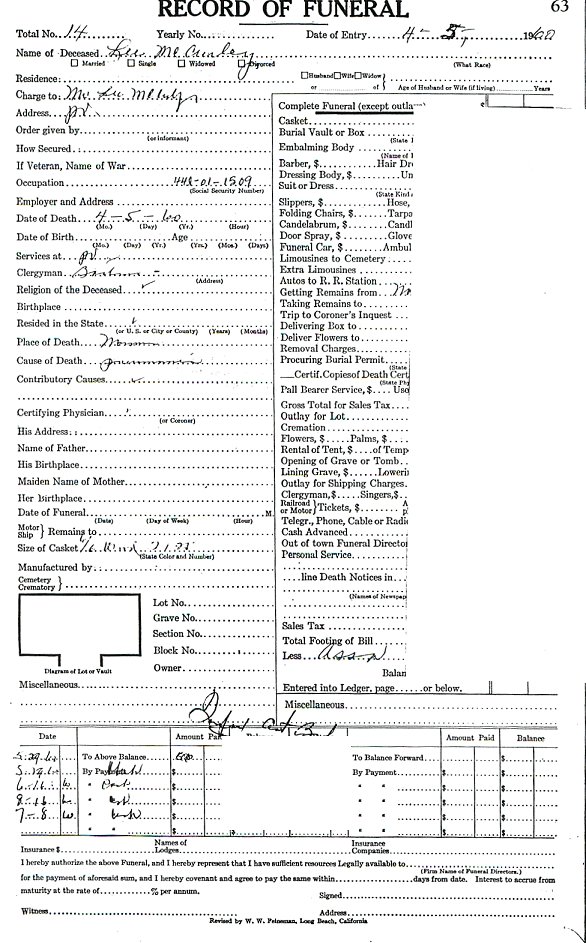 RECORD OF FUNERAL 63
Total No. 14 Yearly No. Date of Entry 4-5- 1960
Name of Deceased Lee
Married Single Widowed Divorced (What Race)
Residence: Husband Wife Widow
or of Age of Husband or Wife (if living) Years
Charge to: Mr. Lee
Address
Order given by
(or informant)
How Secured
If Veteran, Name of War
Occupation 442-01-1509
(Social Security Number)
Employer and Address
Date of Death 4-5-60
(Mo.) (Day) (Yr.) (Hour)
Date of Birth Age
(Mo.) (Day) (Yr.) (Yrs.) (Mos.) (Days)
Services at
(Address)
Clergyman
Religion of the Deceased
Birthplace
Resided in the State
(or U. S. or City or County) (Years) (Months)
Place of Death
Cause of Death pneumonia
Contributory Causes
Certifying Physician
(or Coroner)
His Address:
Name of Father
His Birthplace
Maiden Name of Mother
Her Birthplace
Date of Funeral M.
(Date) (Day of Week) (Hour)
Motor Ship } Remains to
Size of Casket
(State Color and Number)
Manufactured by
Cemetery Crematory }
Lot No.
Grave No.
Section No.
Block No.
Owner
Diagram of Lot or Vault
Miscellaneous
Complete Funeral (except outla
Casket
Burial Vault or Box
(State
Embalming Body
(Name of
Barber, $ Hair Dre
Dressing Body, $ Un
Suit or Dress
(State Kind
Slippers, $ Hose,
Folding Chairs, $ Tarpa
Candelabrum, $ Candl
Door Spray, $ Glove
Funeral Car, $ Ambul
Limousines to Cemetery
Extra Limousines
Autos to R. R. Station
Getting Remains from
Taking Remains to
Trip to Coroner's Inquest
Delivering Box to
Deliver Flowers to
Removal Charges
Procuring Burial Permit
(State
Certif.Copies of Death Cert
(State Phy
Pall Bearer Service, $ Use
Gross Total for Sales Tax
Outlay for Lot
Cremation
Flowers, $ Palms, $
Rental of Tent, $ of Temp
Opening of Grave or Tomb
Lining Grave, $ Loweri
Outlay for Shipping Charges
Clergyman, $ Singers, $
Railroad or Motor } Tickets, $
Telegr., Phone, Cable or Radi
Cash Advanced
Out of town Funeral Directo
Personal Service
line Death Notices in
(Names of Newspap
Sales Tax
Total Footing of Bill
Less
Balan
Entered into Ledger, page or below.
Miscellaneous
Date Amount Paid Amount Paid Balance
To Above Balance $ To Balance Forward $ $
By Payment $ By Payment $ $
" $ " " $ $
" $ " " $ $
" $ " " $ $
" " $ " " $ $
Insurance $ Names of Lodges Insurance Companies
I hereby authorize the above Funeral, and I hereby represent that I have sufficient resources Legally available to
(Firm Name of Funeral Directors.)
for the payment of aforesaid sum, and I hereby covenant and agree to pay the same within days from date. Interest to accrue from
maturity at the rate of % per annum. Signed
Witness Address
Revised by W. W. Feineman, Long Beach, California